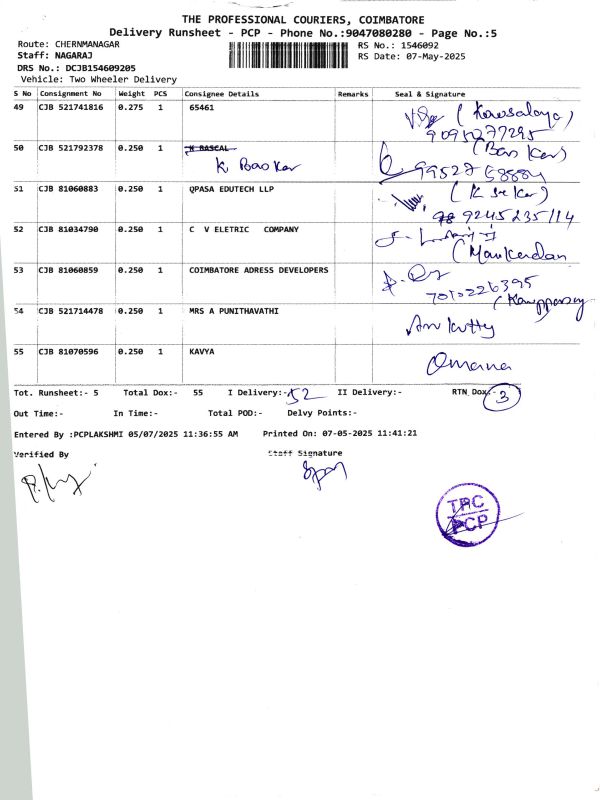 THE PROFESSIONAL COURIERS, COIMBATORE
Delivery Runsheet - PCP - Phone No.:9047080280 - Page No.:5
Route: CHERNMANAGAR RS No.: 1546092
Staff: NAGARAJ RS Date: 07-May-2025
DRS No.: DCJB154609205
Vehicle: Two Wheeler Delivery
S No Consignment No Weight PCS Consignee Details Remarks Seal & Signature
49 CJB 521741816 0.275 1 65461
(Kowsalaya)
9095277295
50 CJB 521792378 0.250 1 K BASCAL (Baskar)
K Baskar 99527
51 CJB 81060883 0.250 1 QPASA EDUTECH LLP
9245235114
52 CJB 81034790 0.250 1 C V ELETRIC COMPANY
(Manikandan
53 CJB 81060859 0.250 1 COIMBATORE ADRESS DEVELOPERS
54 CJB 521714478 0.250 1 MRS A PUNITHAVATHI
55 CJB 81070596 0.250 1 KAVYA Omana
Tot. Runsheet:- 5 Total Dox:- 55 I Delivery:- 52 II Delivery:- RTN Dox:- 3
Out Time:- In Time:- Total POD:- Delvy Points:-
Entered By :PCPLAKSHMI 05/07/2025 11:36:55 AM Printed On: 07-05-2025 11:41:21
Verified By Staff Signature
TPC
PCP